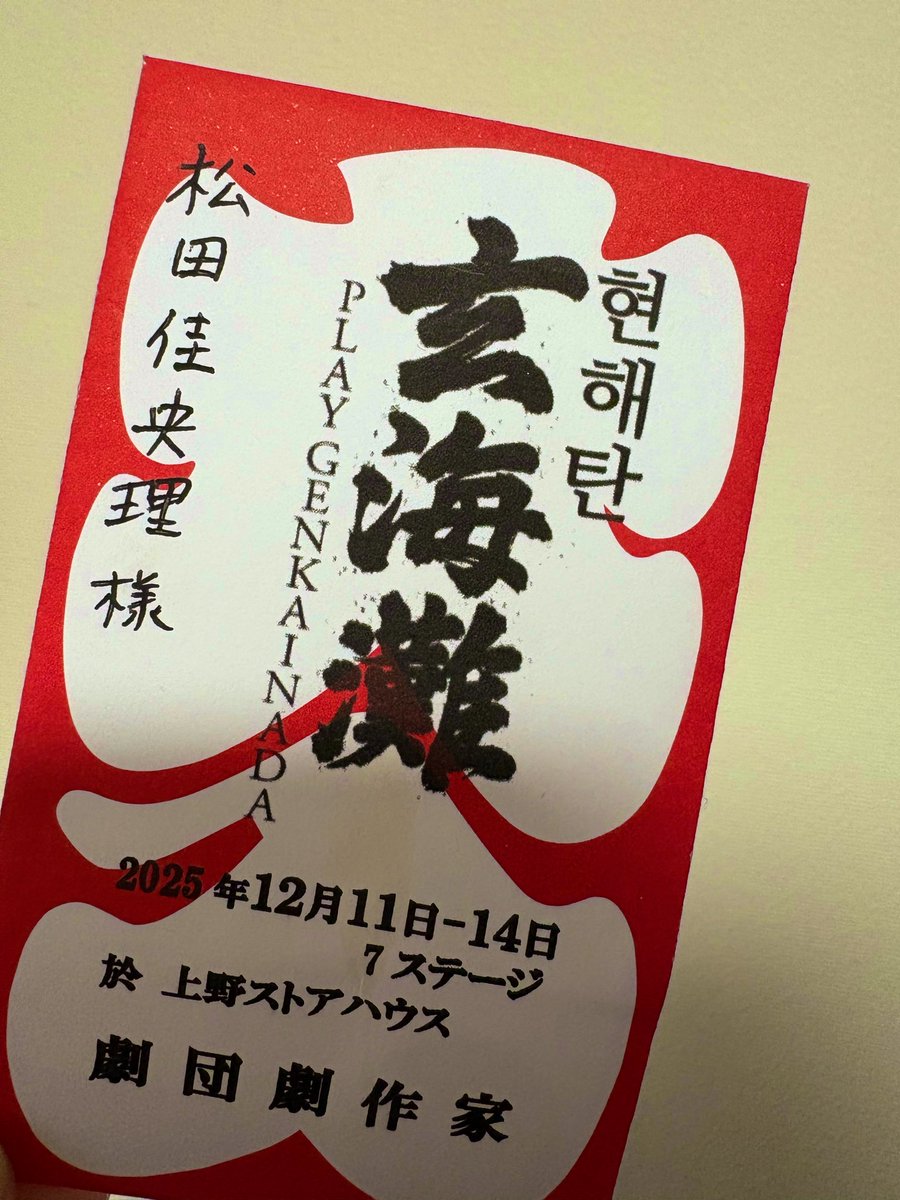 현해탄
玄海灘
PLAY GENKAINADA
松田佳央理様
2025年12月11日-14日
7ステージ
於 上野ストアハウス
劇団劇作家